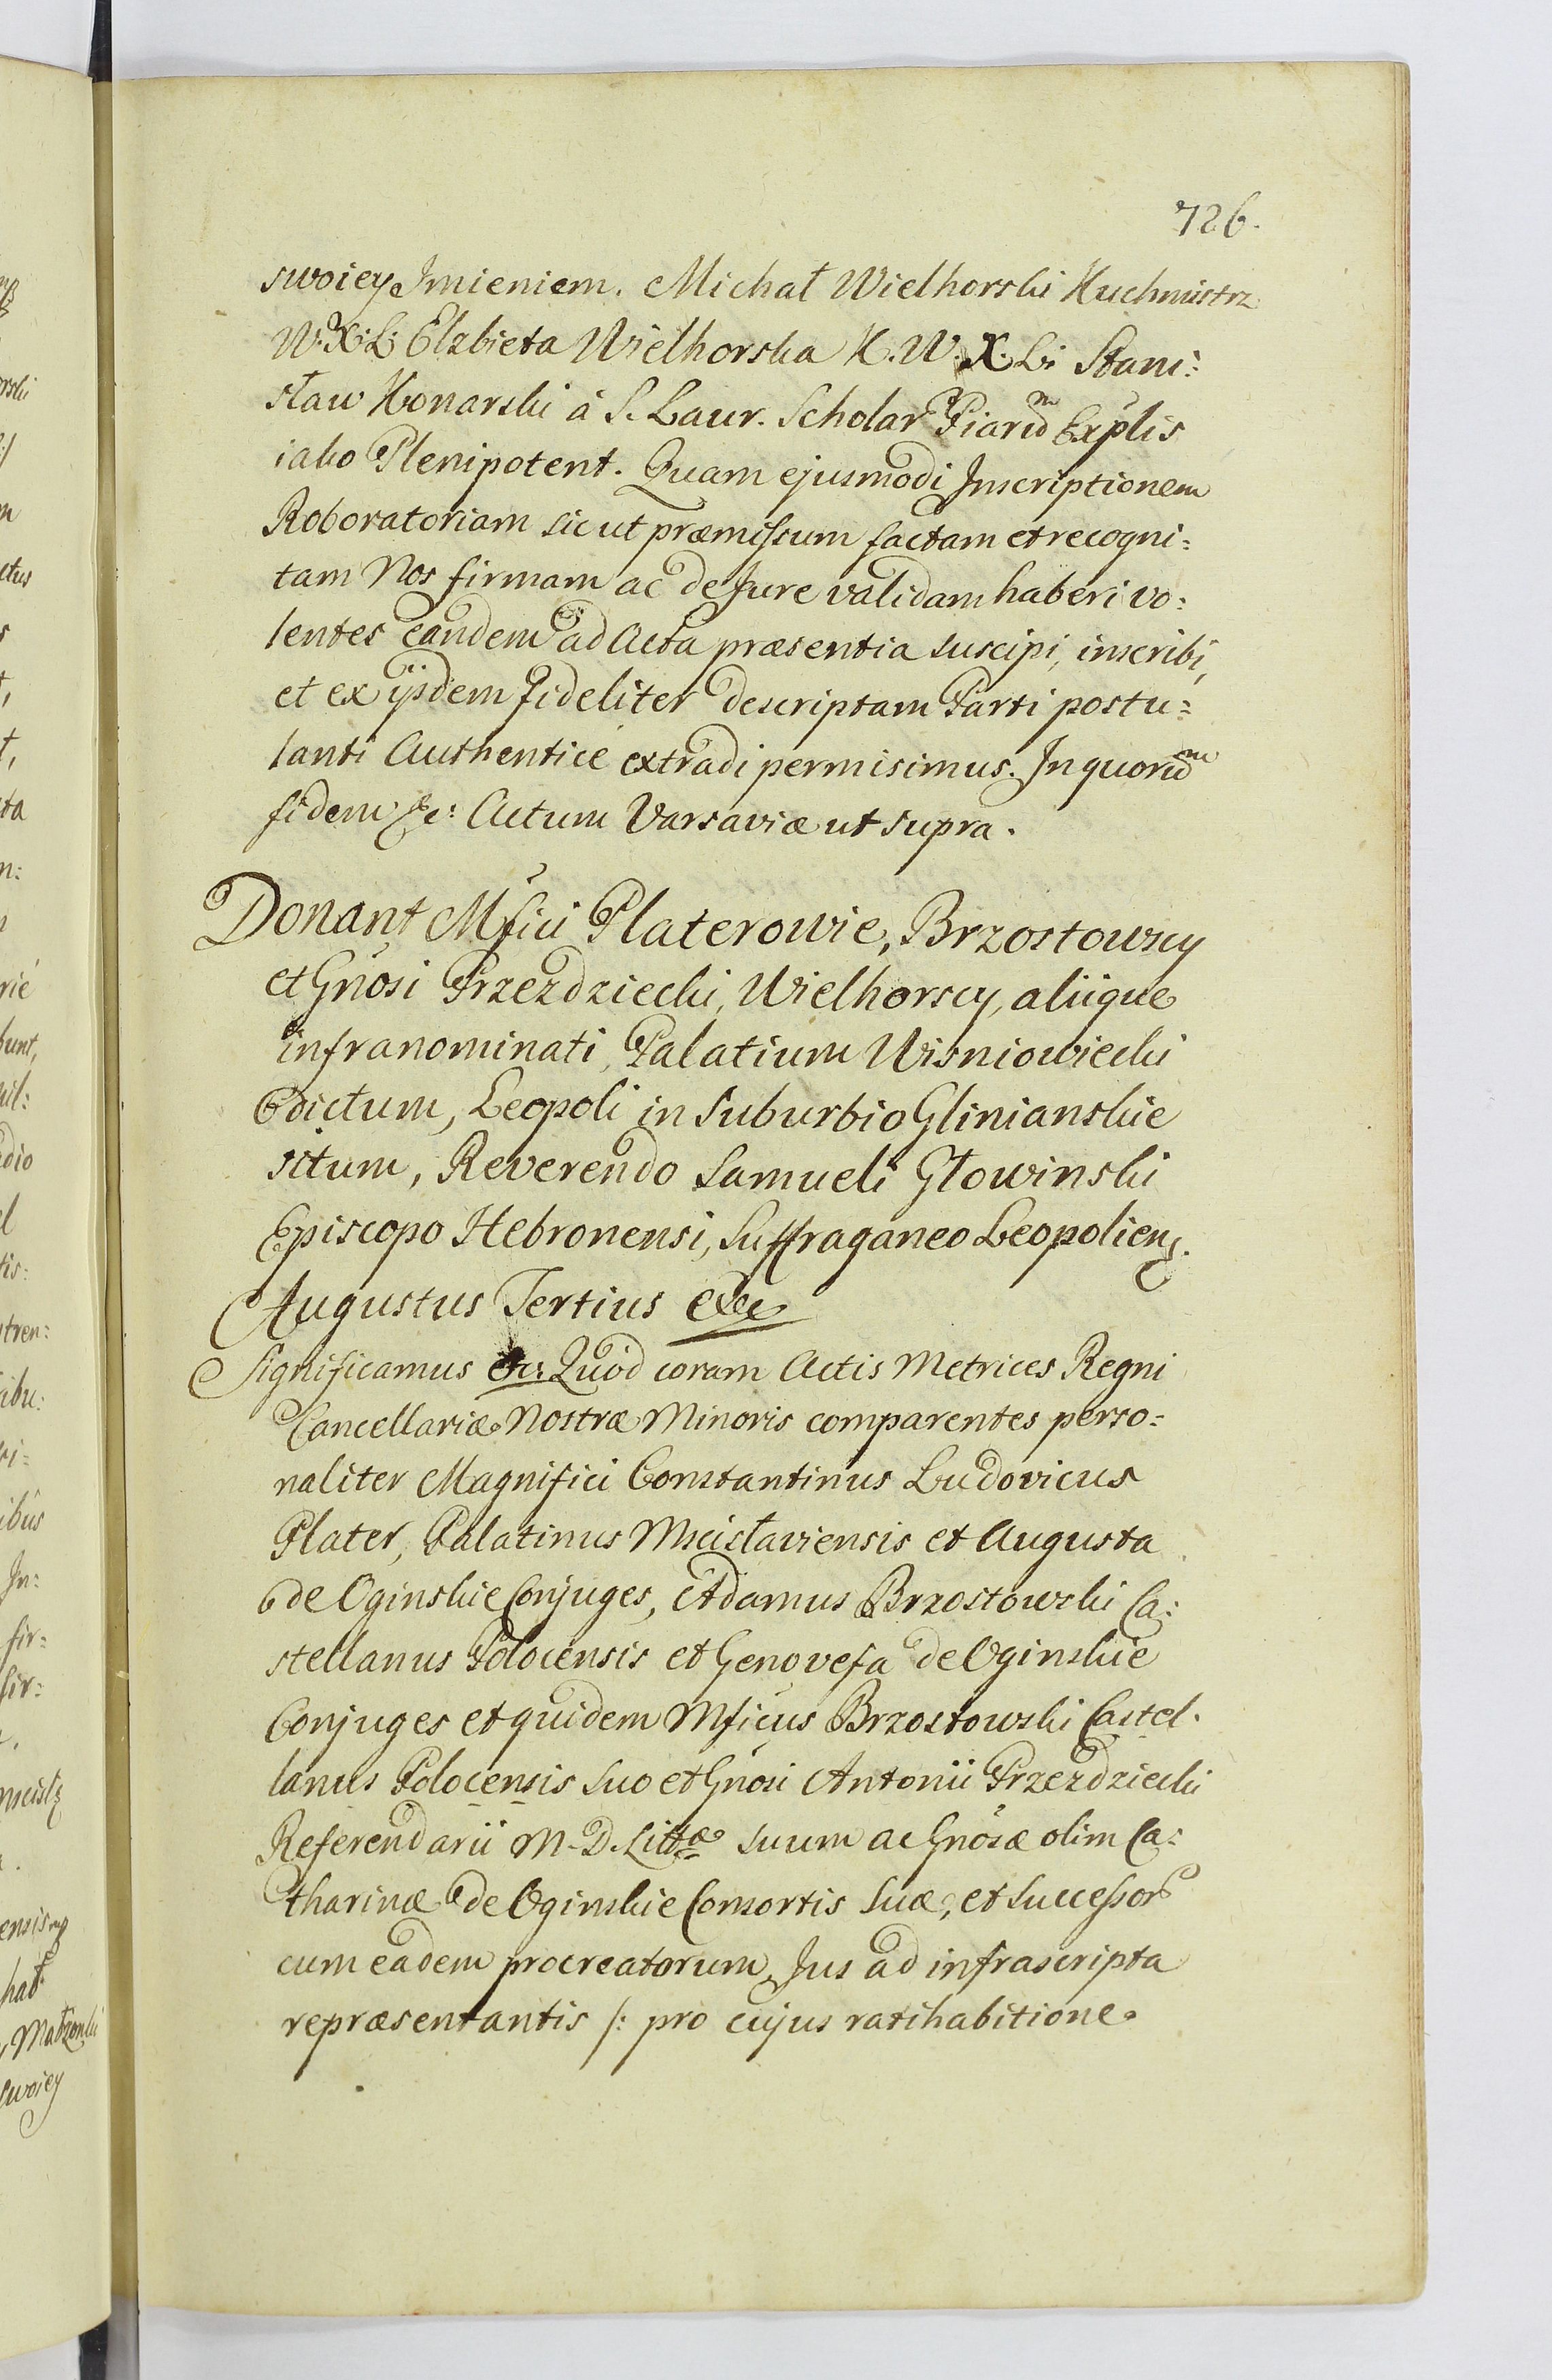 726.
swoiey Jmieniem. Michał Wielhorski Kuchmistrz
W: X: L: Elzbieta Wielhorska K. W. X. L: Stani:
sław Konarski à S. Laur. Scholar Piarum Explis
iako Plenipotent. Quam ejusmodi Inscriptionem
Roboratoriam sic ut præmissum factam et recogni:
tam Nos firmam ac de Jure validam haberi vo:
lentes eandem ad Acta præsentia suscipi, inscribi,
et ex ijsdem fideliter descriptam Parti postu:
lanti Authenticé extradi permisimus. In quorum
fidem &c: Actum Varsaviæ ut supra.
Donant Mfici Platerowie, Brzostowscy
et Gnosi Przezdziecki, Wielhorscy, aliique
infranominati, Palatium Wisniowiecki
dictum, Leopoli in Suburbio Glinianskie
situm, Reverendo Samueli Głowinski
Episcopo Hebronensi, Suffraganeo Leopoliens.
Augustus Tertius etc
Significamus etc. Quod coram Actis Metrices Regni
Cancellariæ Nostræ Minoris comparentes perso:
naliter Magnifici Constantinus Ludovicus
Plater, Palatinus Mscislaviensis et Augusta
de Oginskie Conjuges, Adamus Brzostowski Ca:
stellanus Polocensis et Genovefa de Oginskie
Conjuges et quidem Mficus Brzostowski Castel.
lanus Polocensis suo et Gnosi Antonii Przezdziecki
Referendarii M. D. Littæ suum ac Gnosæ olim Ca:
tharinæ de Oginskie Consortis suæ, et Successor
cum eadem procreatorum, Jus ad infrascripta
repræsentantis /: pro cujus ratihabitione